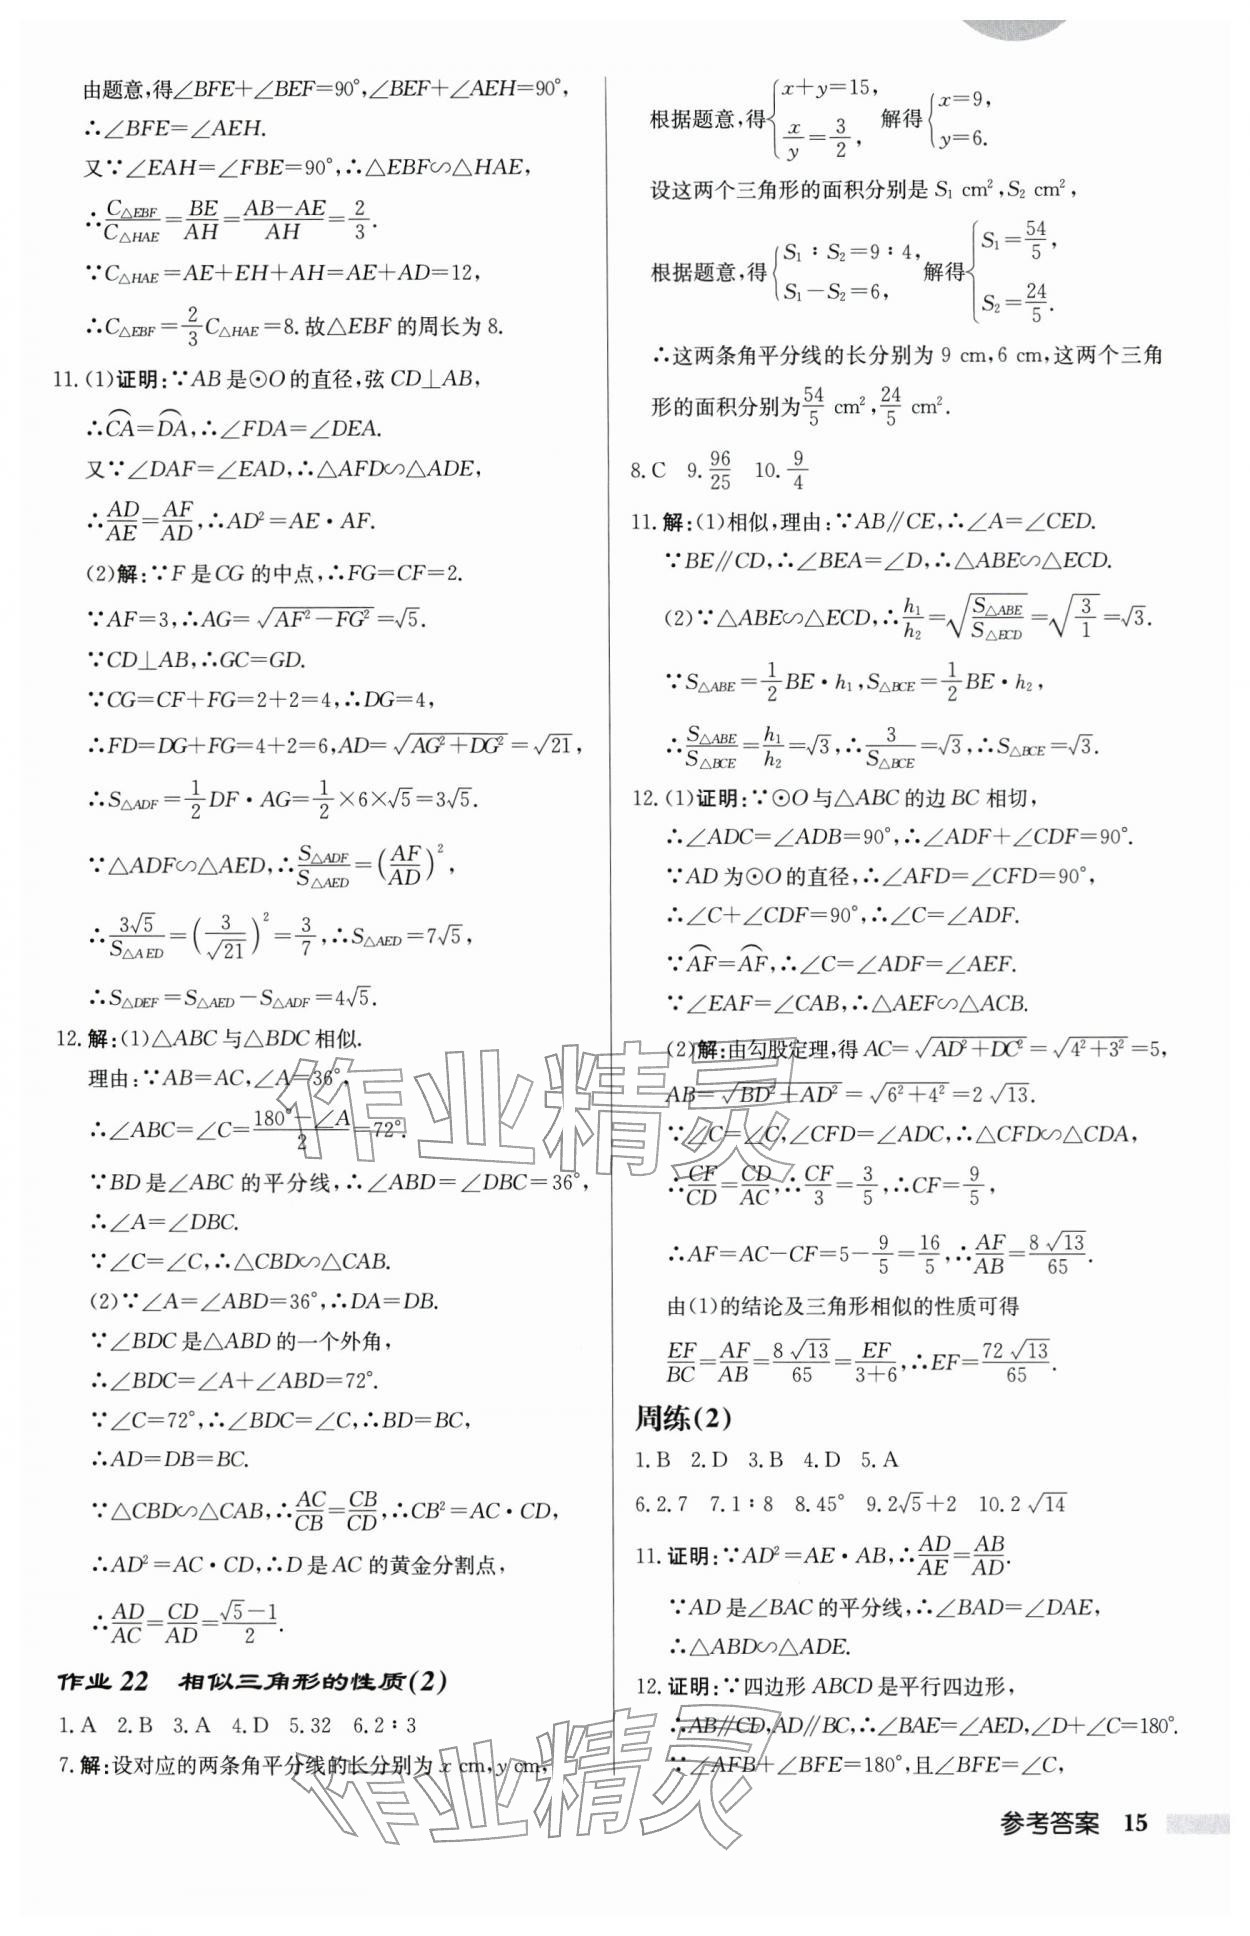 由题意,得∠BFE+∠BEF=90°,∠BEF+∠AEH=90°,
∴∠BFE=∠AEH.
又∵∠EAH=∠FBE=90°,∴△EBF∽△HAE,
∴C△EBF/C△HAE=BE/AH=(AB−AE)/AH=2/3.
∵C△HAE=AE+EH+AH=AE+AD=12,
∴C△EBF=2/3C△HAE=8.故△EBF的周长为8.
11.(1)证明:∵AB是⊙O的直径,弦CD⊥AB,
∴⌒CA=⌒DA,∴∠FDA=∠DEA.
又∵∠DAF=∠EAD,∴△AFD∽△ADE,
∴AD/AE=AF/AD,∴AD²=AE·AF.
(2)解:∵F是CG的中点,∴FG=CF=2.
∵AF=3,∴AG=√(AF²−FG²)=√5.
∵CD⊥AB,∴GC=GD.
∵CG=CF+FG=2+2=4,∴DG=4,
∴FD=DG+FG=4+2=6,AD=√(AG²+DG²)=√21,
∴S△ADF=1/2DF·AG=1/2×6×√5=3√5.
∵△ADF∽△AED,∴S△ADF/S△AED=(AF/AD)²,
∴3√5/S△AED=(3/√21)²=3/7,∴S△AED=7√5,
∴S△DEF=S△AED−S△ADF=4√5.
12.解:(1)△ABC与△BDC相似.
理由:∵AB=AC,∠A=36°,
∴∠ABC=∠C=(180°−∠A)/2=72°.
∵BD是∠ABC的平分线,∴∠ABD=∠DBC=36°,
∴∠A=∠DBC.
∵∠C=∠C,∴△CBD∽△CAB.
(2)∵∠A=∠ABD=36°,∴DA=DB.
∵∠BDC是△ABD的一个外角,
∴∠BDC=∠A+∠ABD=72°.
∵∠C=72°,∴∠BDC=∠C,∴BD=BC,
∴AD=DB=BC.
∵△CBD∽△CAB,∴AC/CB=CB/CD,∴CB²=AC·CD,
∴AD²=AC·CD,∴D是AC的黄金分割点,
∴AD/AC=CD/AD=(√5−1)/2.
作业22 相似三角形的性质(2)
1.A 2.B 3.A 4.D 5.32 6.2∶3
7.解:设对应的两条角平分线的长分别为x cm,y cm,
根据题意,得{x+y=15, x/y=3/2, 解得{x=9, y=6.
设这两个三角形的面积分别是S₁ cm²,S₂ cm²,
根据题意,得{S₁∶S₂=9∶4, S₁−S₂=6, 解得{S₁=54/5, S₂=24/5.
∴这两条角平分线的长分别为9 cm,6 cm,这两个三角
形的面积分别为54/5 cm²,24/5 cm².
8.C 9.96/25 10.9/4
11.解:(1)相似,理由:∵AB∥CE,∴∠A=∠CED.
∵BE∥CD,∴∠BEA=∠D,∴△ABE∽△ECD.
(2)∵△ABE∽△ECD,∴h₁/h₂=√(S△ABE/S△ECD)=√(3/1)=√3.
∵S△ABE=1/2BE·h₁,S△BCE=1/2BE·h₂,
∴S△ABE/S△BCE=h₁/h₂=√3,∴3/S△BCE=√3,∴S△BCE=√3.
12.(1)证明:∵⊙O与△ABC的边BC相切,
∴∠ADC=∠ADB=90°,∴∠ADF+∠CDF=90°.
∵AD为⊙O的直径,∴∠AFD=∠CFD=90°,
∴∠C+∠CDF=90°,∴∠C=∠ADF.
∵⌒AF=⌒AF,∴∠C=∠ADF=∠AEF.
∵∠EAF=∠CAB,∴△AEF∽△ACB.
(2)解:由勾股定理,得AC=√(AD²+DC²)=√(4²+3²)=5,
AB=√(BD²+AD²)=√(6²+4²)=2√13.
∵∠C=∠C,∠CFD=∠ADC,∴△CFD∽△CDA,
∴CF/CD=CD/AC,∴CF/3=3/5,∴CF=9/5,
∴AF=AC−CF=5−9/5=16/5,∴AF/AB=8√13/65.
由(1)的结论及三角形相似的性质可得
EF/BC=AF/AB=8√13/65=EF/(3+6),∴EF=72√13/65.
周练(2)
1.B 2.D 3.B 4.D 5.A
6.2.7 7.1∶8 8.45° 9.2√5+2 10.2√14
11.证明:∵AD²=AE·AB,∴AD/AE=AB/AD.
∵AD是∠BAC的平分线,∴∠BAD=∠DAE,
∴△ABD∽△ADE.
12.证明:∵四边形ABCD是平行四边形,
∴AB∥CD,AD∥BC,∴∠BAE=∠AED,∠D+∠C=180°.
∵∠AFB+∠BFE=180°,且∠BFE=∠C,
参考答案 15
作业精灵
作业精灵